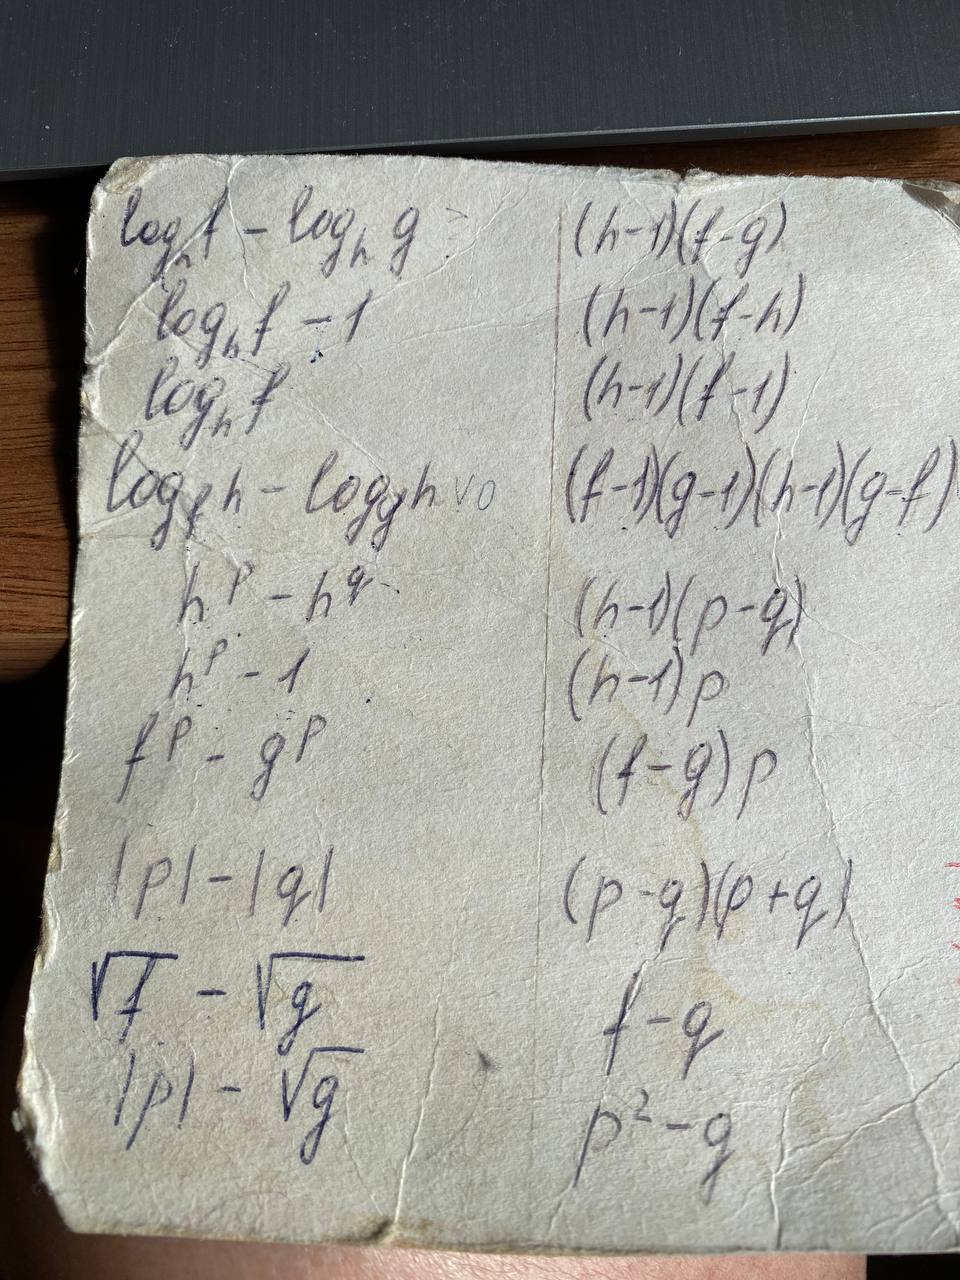 log_h f - log_h g > (h-1)(f-g)
log_h f - 1 (h-1)(f-h)
log_h f (h-1)(f-1)
log_f h - log_g h ∨ 0 (f-1)(g-1)(h-1)(g-f)
h^p - h^q (h-1)(p-q)
h^p - 1 (h-1)p
f^p - g^p (f-g)p
|p| - |q| (p-q)(p+q)
√f - √g f-g
|p| - √g p²-g